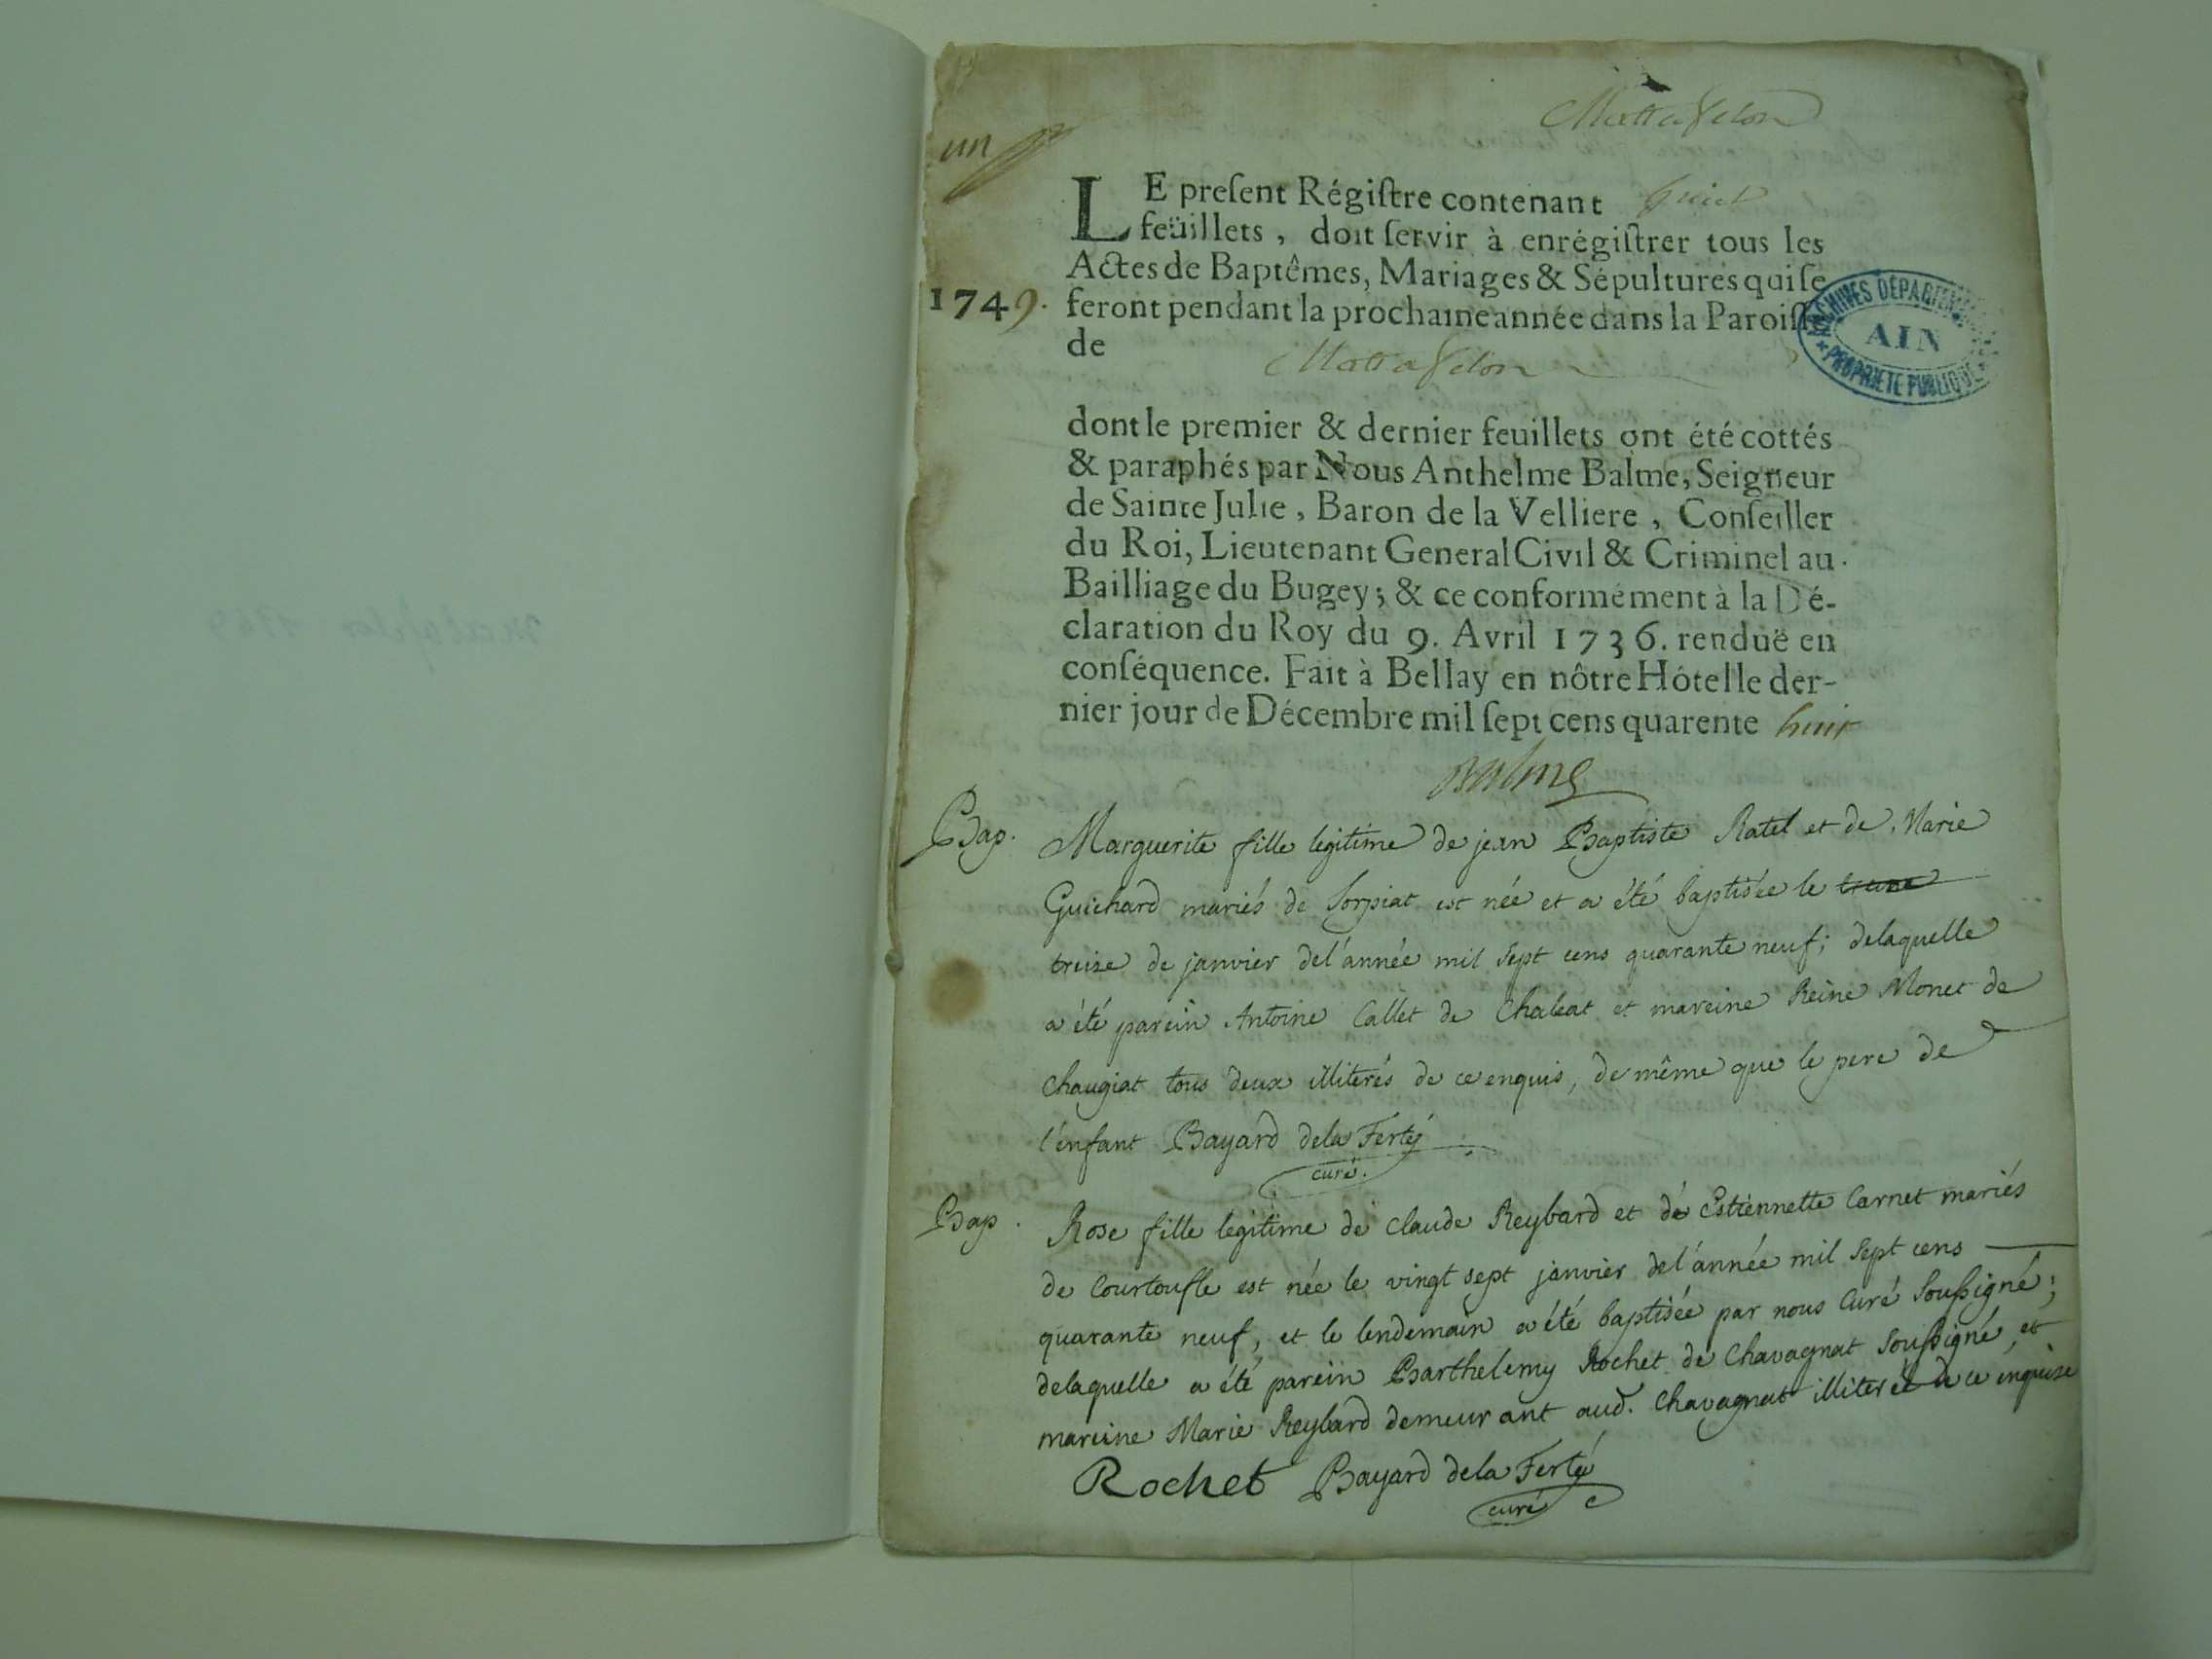 Mattafelon
un
LE preſent Régiſtre contenant huict
feüillets, doit ſervir à enrégiſtrer tous les
Actes de Baptêmes, Mariages & Sépultures qui ſe
1749. feront pendant la prochaine année dans la Paroiſſe
de Mattafelon
ARCHIVES DÉPARTEM
AIN
PROPRIETE PUBLIQUE
dont le premier & dernier feuillets ont été cottés
& paraphés par Nous Anthelme Balme, Seigneur
de Sainte Julie, Baron de la Velliere, Conſeiller
du Roi, Lieutenant General Civil & Criminel au
Bailliage du Bugey; & ce conformément à la Dé-
claration du Roy du 9. Avril 1736. renduë en
conſéquence. Fait à Bellay en nôtre Hôtel le der-
nier jour de Décembre mil ſept cens quarente huit
Balme
Bap. Marguerite fille legitime de jean Baptiste Ratel et de Marie
Guichard mariés de Sorpiat est née et a été baptisée le
treize de janvier del'année mil sept cens quarante neuf; delaquelle
a été parein Antoine Callet de Chaleat et mareine Reine Monet de
Chaugiat tous deux illiterés de ce enquis, de même que le pere de
l'enfant Bayard dela Ferté
curé.
Bap. Rose fille legitime de Claude Reybard et de Estiennette Carnet mariés
de Courtoufle est née le vingt sept janvier del'année mil sept cens
quarante neuf, et le lendemain a été baptisée par nous Curé Soussigné;
delaquelle a été parein Barthelemy Rochet de Chavagnat Soussigné, et
mareine Marie Reybard demeurant aud. Chavagnat illiterée de ce enquise
Rochet Bayard dela Ferté
curé